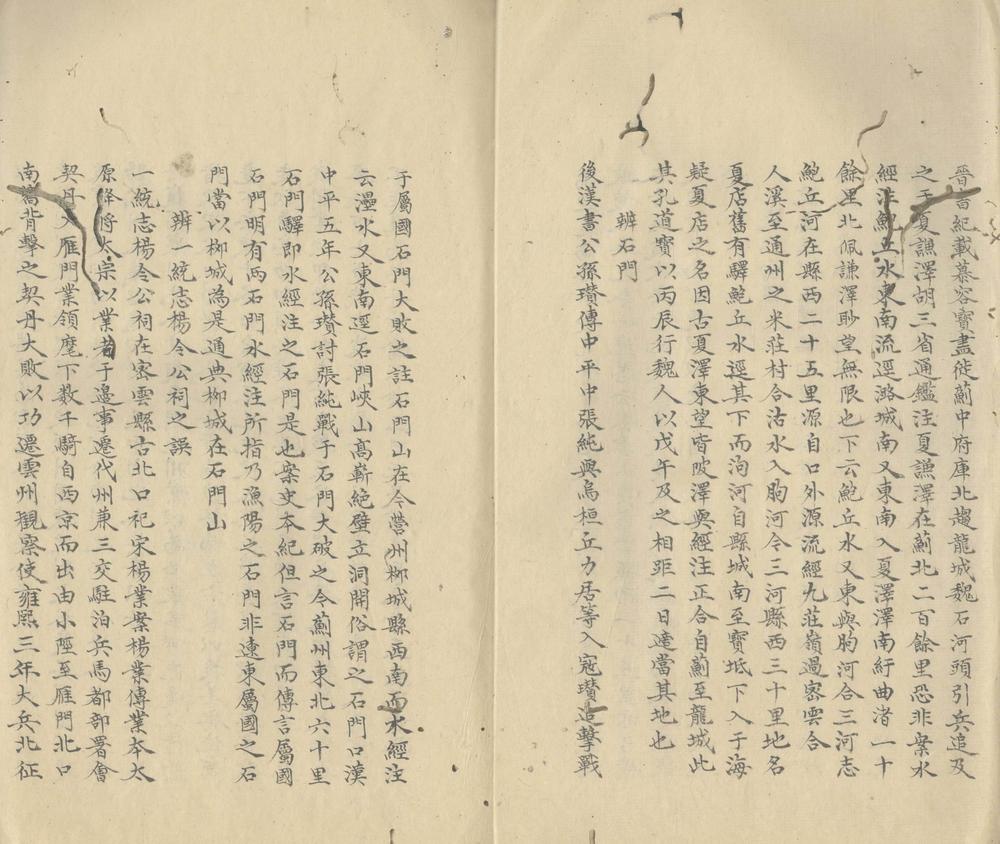 晉書紀載慕容寶盡徙薊中府庫北趨龍城魏石河頭引兵追及
之于夏謙澤胡三省通鑑注夏謙澤在薊北二百餘里恐非案水
經注鮑丘水東南流逕潞城南又東南入夏澤澤南紆曲渚一十
餘里北佩謙澤眇望無限也下云鮑丘水又東與朐河合三河志
鮑丘河在縣西二十五里源自口外源流經九莊嶺過密雲合
人溪至通州之米莊村合沽水入朐河今三河縣西三十里地名
夏店舊有驛鮑丘水逕其下而泃河自縣城南至寶坻下入于海
疑夏店之名因古夏澤東望皆陂澤與經注正合自薊至龍城此
其孔道寶以丙辰行魏人以戊午及之相距二日達當其地也
辨石門
後漢書公孫瓚傳中平中張純與烏桓丘力居等入寇瓚追擊戰
于屬國石門大敗之註石門山在今營州柳城縣西南而水經注
云灅水又東南逕石門峽山高嶄絶壁立洞開俗謂之石門口漢
中平五年公孫瓚討張純戰于石門大破之今薊州東北六十里
石門驛即水經注之石門是也案史本紀但言石門而傳言屬國
石門明有兩石門水經注所指乃漁陽之石門非遼東屬國之石
門當以柳城為是通典柳城在石門山
辨一統志楊令公祠之誤
一統志楊令公祠在密雲縣古北口祀宋楊業案楊業傳業本太
原降将太宗以業者于邊事遷代州兼三交駐泊兵馬都部署會
契丹入雁門業領麾下数千騎自西京而出由小陘至雁門北口
南嚮背擊之契丹大敗以功遷雲州觀察使雍熙三年大兵北征